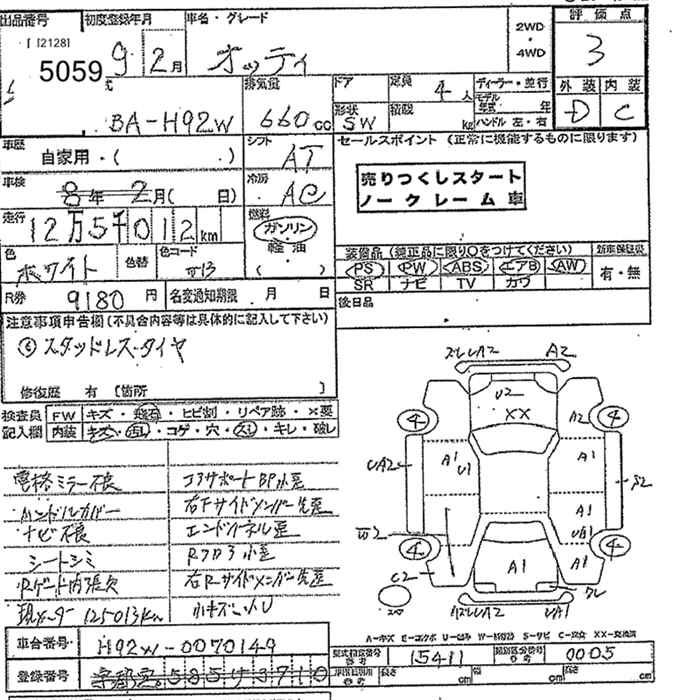 出品番号 初度登録年月 車名・グレード 2WD・4WD 評価点
[2128]
5059 9 2月 オッティ 3
排気量 ドア 定員 4人 ディーラー・並行 外装 内装
BA-H92W 660cc 形状 SW 積載 kg モデル年式 年 ハンドル 左・右 D C
車歴 自家用・( ・) シフト AT セールスポイント (正常に機能するものに限ります)
車検 8年 2月( 日) 冷房 AC 売りつくしスタート
ノークレーム車
走行 12万5千012km 燃料 ガソリン
軽油
( )
色 ホワイト 色替 色コード 装備品 (純正品に限り○をつけてください) 新車保証書
PS PW ABS エアB AW 有・無
SR ナビ TV カワ
R券 9180円 名変通知期限 月 日 後日品
注意事項申告欄 (不具合内容等は具体的に記入して下さい)
スタッドレスタイヤ
修復歴 有 〔箇所 〕
検査員 FW キズ・飛石・ヒビ割・リペア跡・×要
記入欄 内装 キズ・汚れ・コゲ・穴・スレ・キレ・破レ
電格ミラー不良 コアサポートBP小歪
ハンドルカバー 右Fサイドメンバー先歪
ナビ不良 エンドパネル歪
シートシミ Rフロア小歪
Rゲート内張欠 右Rサイドメンバー先歪
現メーター125013km 小キズ凹U
A2
U2
XX
4 A2 4
UA2 A1 U1 A1 S2
W2 A1
UA1
4 4
C2 A1 A1
UA1
A-キズ E-エクボ U-凹み W-補修跡 S-サビ C-腐食 XX-交換済
車台番号 H92W-0070149 型式指定番号 15411 類別区分番号 0005
登録番号 宇都宮 585 3710 長さ cm 幅 cm 高さ cm